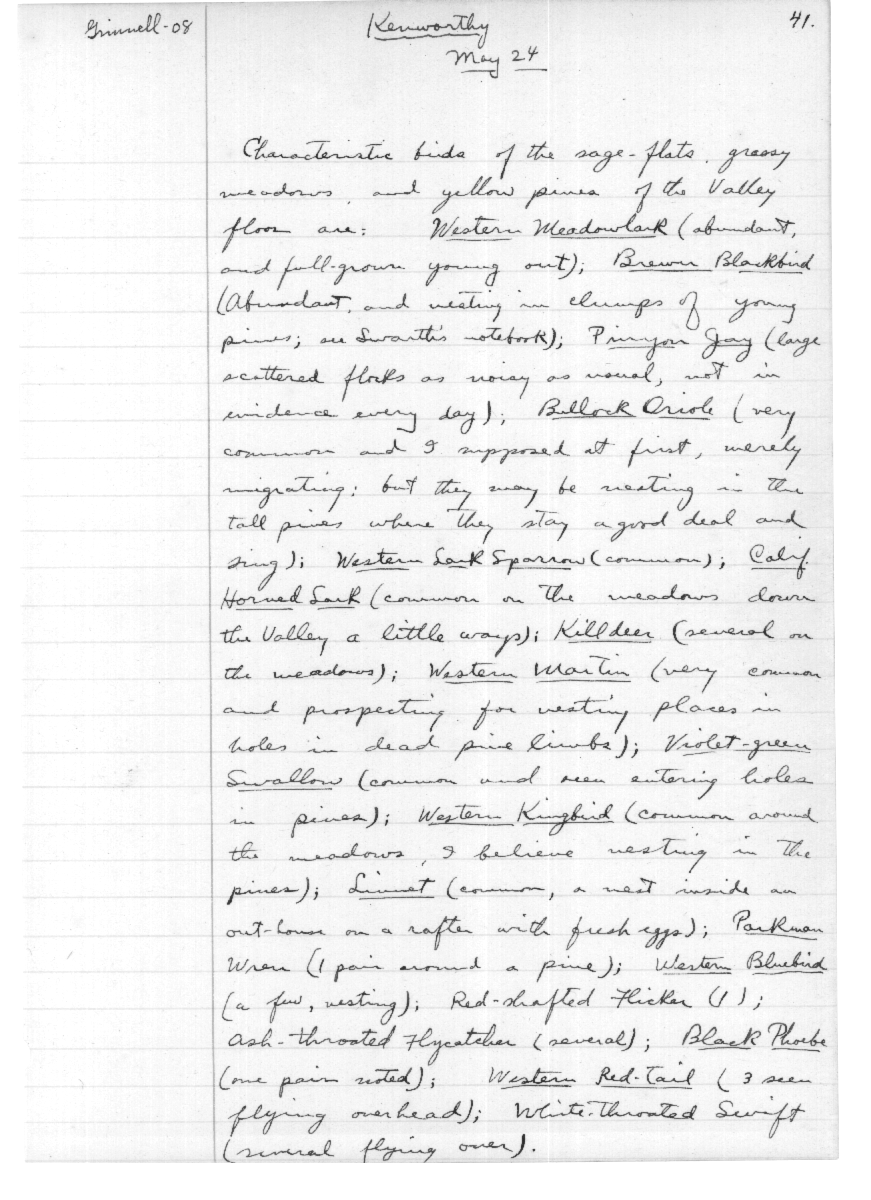 Grinnell-08
Kenworthy
41.
May 24
Characteristic birds of the sage-flats, grassy
meadows, and yellow pines of the Valley
floor are: Western Meadowlark (abundant,
and full-grown young out); Brewer Blackbird
(Abundant, and nesting in clumps of young
pines; see Swarth's notebook); Pinyon Jay (large
scattered flocks as noisy as usual, not in
evidence every day); Bullock Oriole (very
common and I supposed at first, merely
migrating; but they may be nesting in the
tall pines where they stay a good deal and
sing); Western Lark Sparrow (common); Calif.
Horned Lark (common on the meadows down
the Valley a little ways); Killdeer (several on
the meadows); Western Martin (very common
and prospecting for nesting places in
holes in dead pine limbs); Violet-green
Swallow (common and seen entering holes
in pines); Western Kingbird (common around
the meadows, I believe nesting in the
pines); Linnet (common, a nest inside an
out-house on a rafter with fresh eggs); Parkman
Wren (1 pair around a pine); Western Bluebird
(a few, nesting); Red-shafted Flicker (1);
Ash-throated Flycatcher (several); Black Phoebe
(one pair noted); Western Red-tail (3 seen
flying overhead); White-throated Swift
(several flying over).